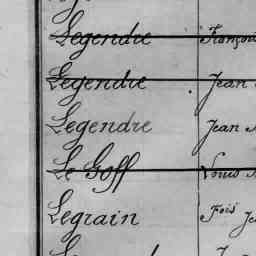 Legendre François
Legendre Jean
Legendre Jean
Le Goff Louis
Legrain Fois Je